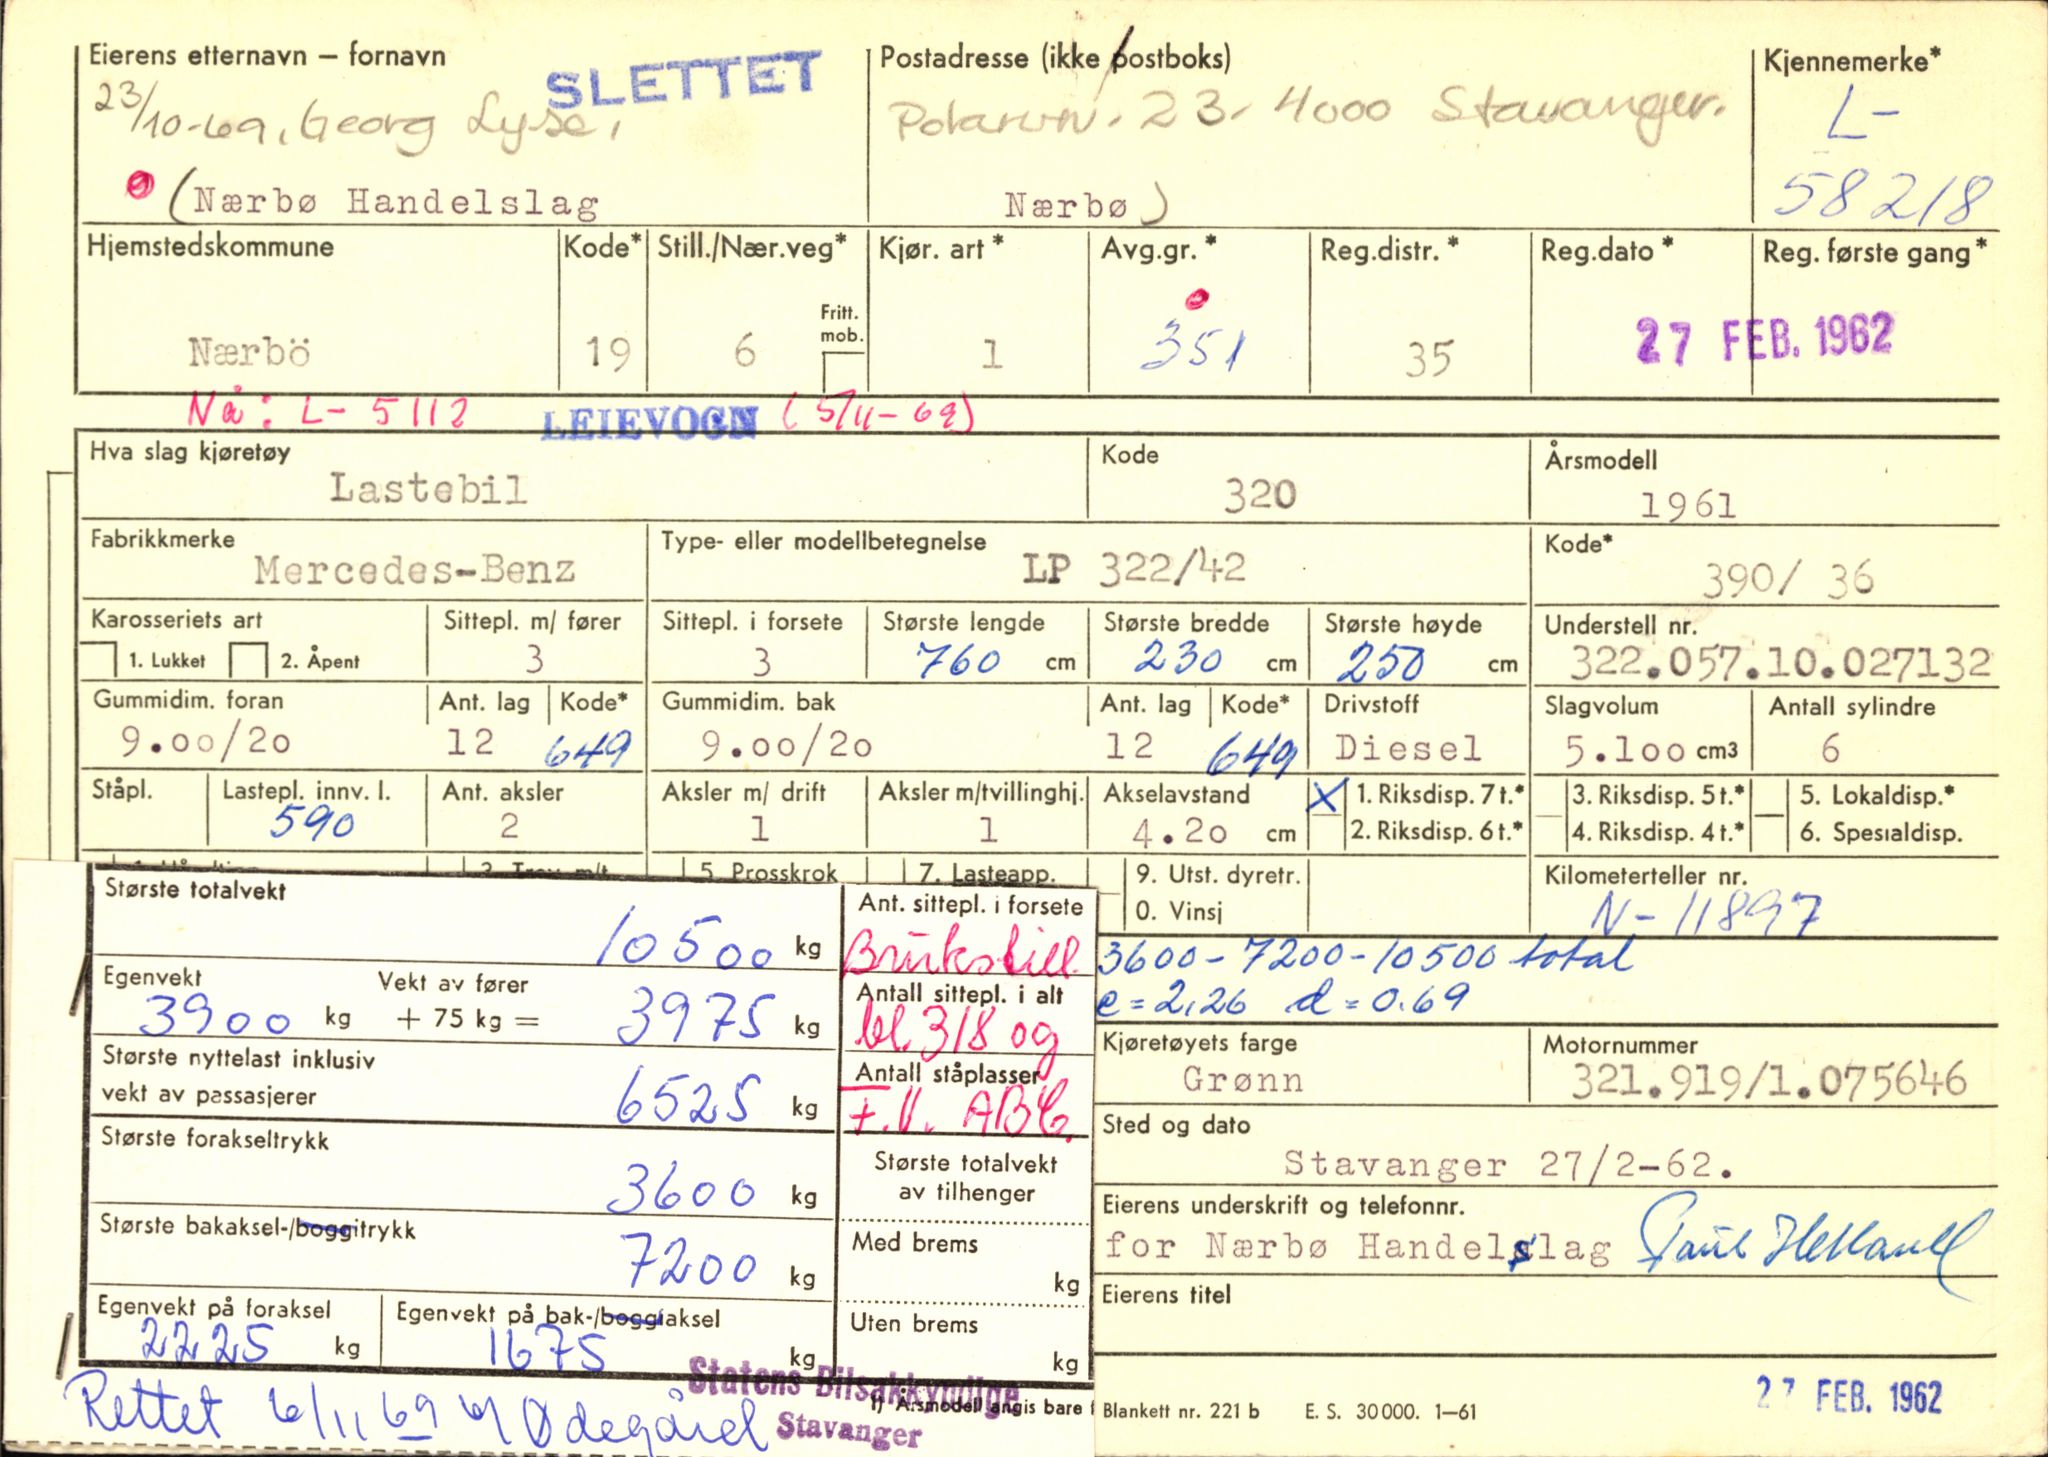 Eierens etternavn – fornavn SLETTET Postadresse (ikke postboks) Kjennemerke*
23/10-69, Georg Lyse, 23. 4000 Stavanger. L-
(Nærbø Handelslag Nærbø) 58218
Hjemstedskommune Kode* Still./Nær.veg* Kjør. art* Avg.gr.* Reg.distr.* Reg.dato* Reg. første gang*
Fritt. mob.
Nærbö 19 6 1 351 35 27 FEB. 1962
Nå: L- 5112 LEIEVOGN (5/11-69)
Hva slag kjøretøy Kode Årsmodell
Lastebil 320 1961
Fabrikkmerke Type- eller modellbetegnelse Kode*
Mercedes-Benz LP 322/42 390/ 36
Karosseriets art Sittepl. m/ fører Sittepl. i forsete Største lengde Største bredde Største høyde Understell nr.
1. Lukket 2. Åpent 3 3 760 cm 230 cm 250 cm 322.057.10.027132
Gummidim. foran Ant. lag Kode* Gummidim. bak Ant. lag Kode* Drivstoff Slagvolum Antall sylindre
9.00/20 12 649 9.00/20 12 649 Diesel 5.100 cm3 6
Ståpl. Lastepl. innv. l. Ant. aksler Aksler m/ drift Aksler m/tvillinghj. Akselavstand X 1. Riksdisp. 7 t.* 3. Riksdisp. 5 t.* 5. Lokaldisp.*
590 2 1 1 4.20 cm 2. Riksdisp. 6 t.* 4. Riksdisp. 4 t.* 6. Spesialdisp.
5. Prosskrok 7. Lasteapp. 9. Utst. dyretr. Kilometerteller nr.
0. Vinsj N-11897
Største totalvekt Ant. sittepl. i forsete
10500 kg Brukstill. 3600-7200-10500 total
Egenvekt Vekt av fører Antall sittepl. i alt
3900 kg + 75 kg = 3975 kg bl. 318 og c=2,26 d=0.69
Største nyttelast inklusiv Antall ståplasser Kjøretøyets farge Motornummer
vekt av passasjerer 6525 kg F.V. Grønn 321.919/1.075646
Største forakseltrykk Største totalvekt Sted og dato
3600 kg av tilhenger Stavanger 27/2-62.
Største bakaksel-/boggitrykk Med brems Eierens underskrift og telefonnr.
7200 kg kg for Nærbø Handelslag
Egenvekt på foraksel Egenvekt på bak-/boggiaksel Uten brems Eierens titel
2225 kg 1675 kg kg
Statens Bilsakkyndige
Stavanger
Rettet 6/11 69 Ødegård
1) Årsmodell angis bare
Blankett nr. 221 b E. S. 30000. 1–61 27 FEB. 1962